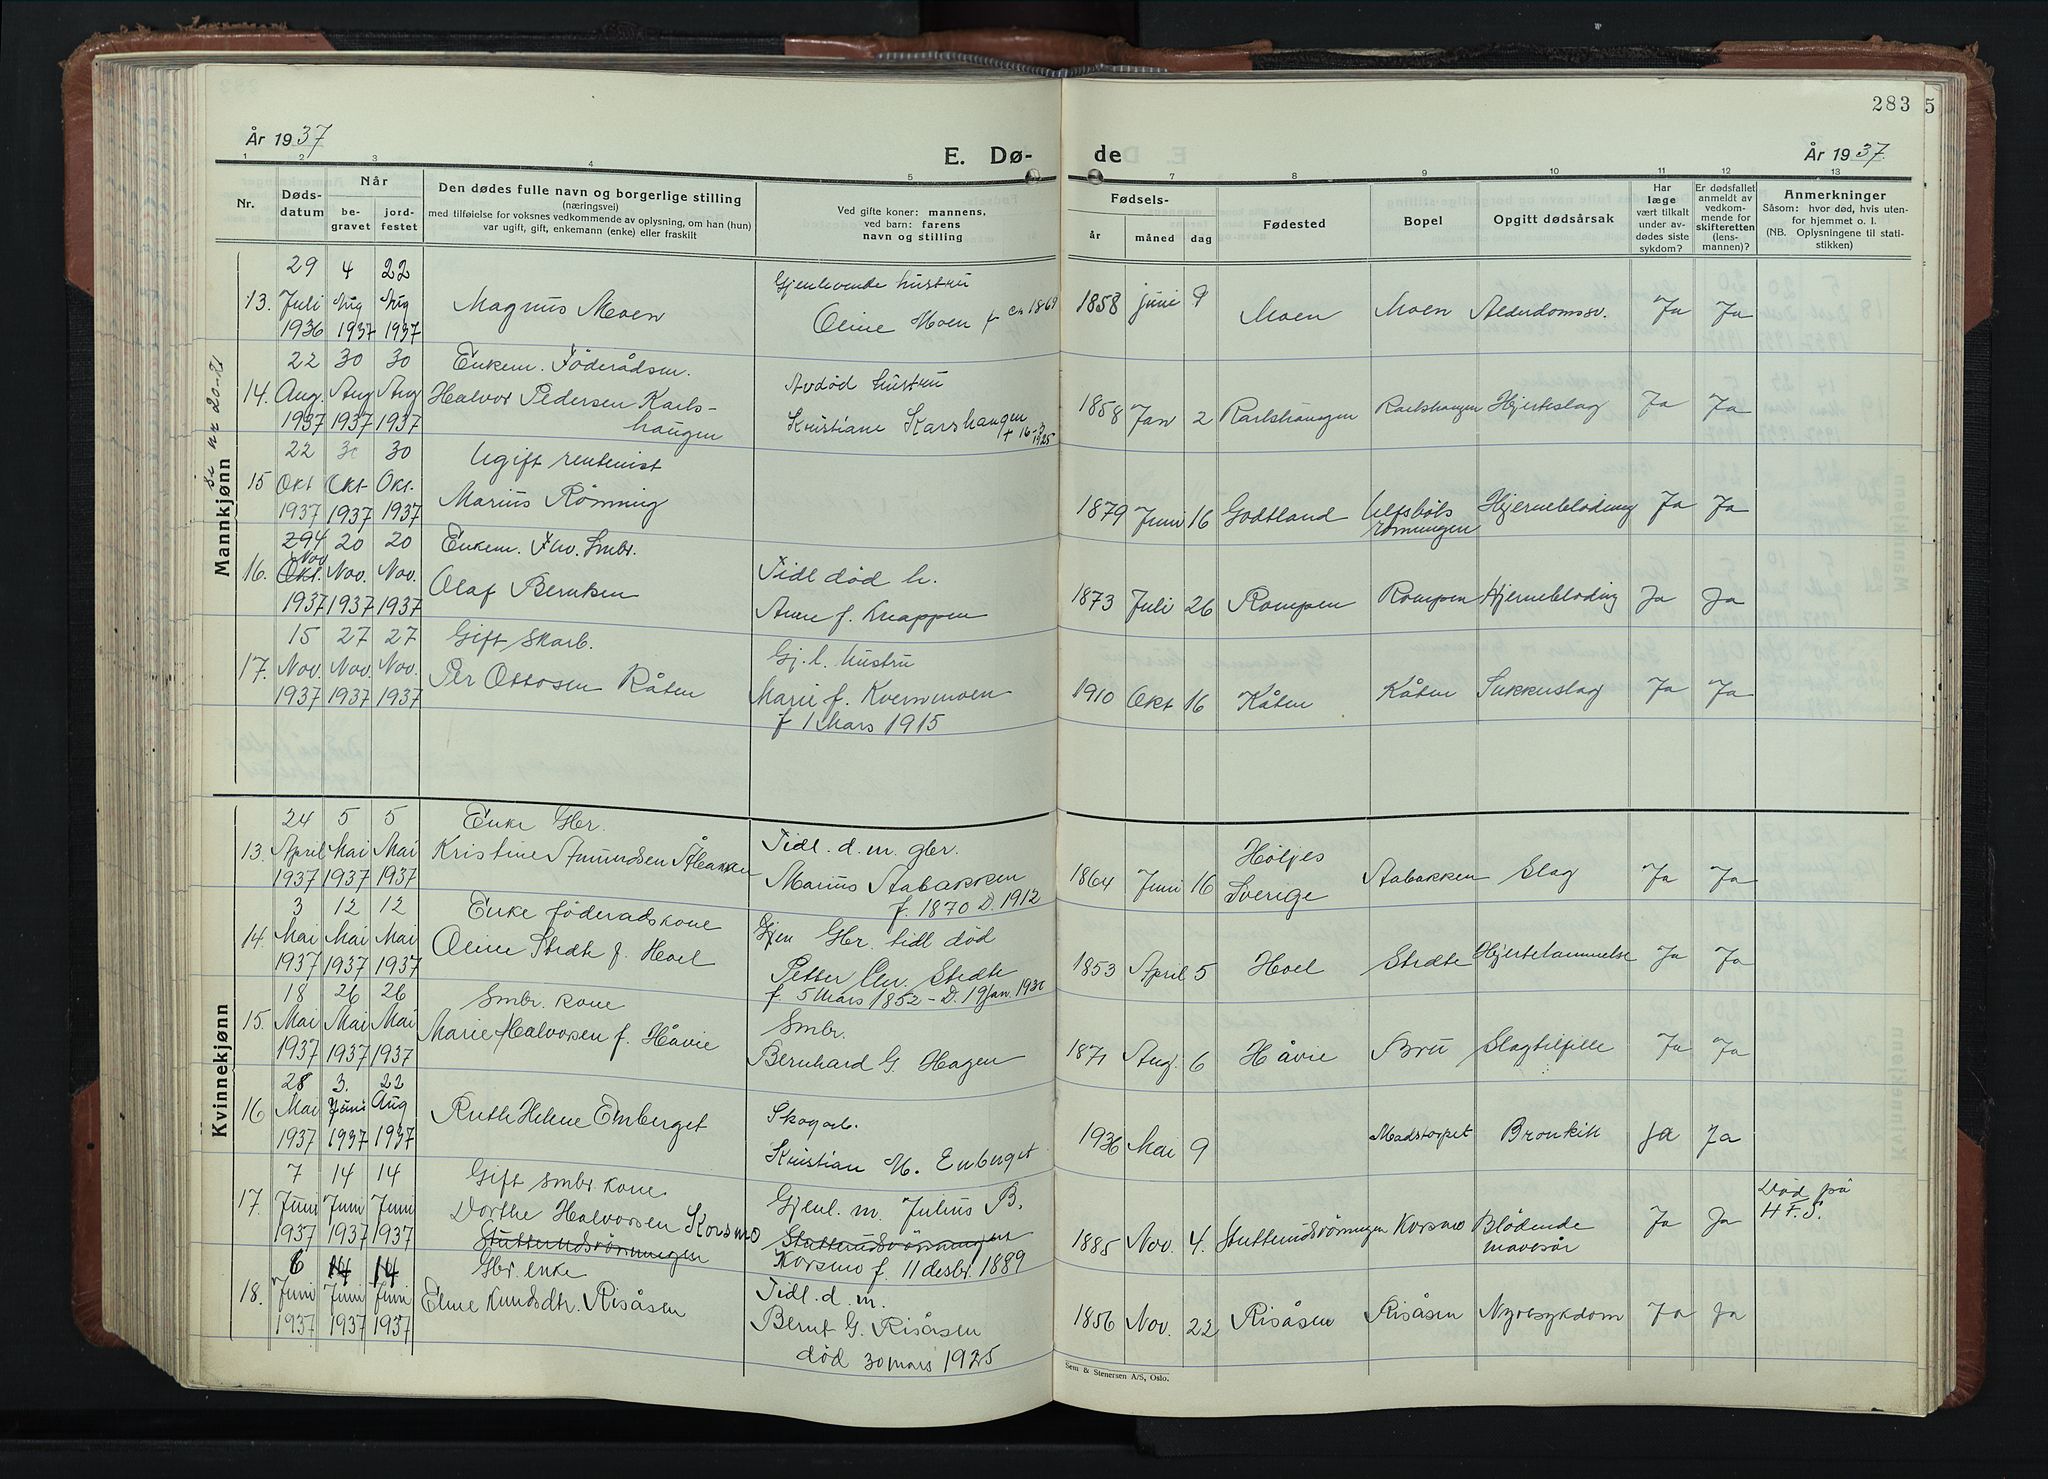 År 1937
E. Dø-
de
283
5
År 1937.
1 2 3 4 5 7 8 9 10 11 12 13
Nr.
Døds-
datum
Når
be-
gravet
jord-
festet
Den dødes fulle navn og borgerlige stilling
(næringsvei)
med tilføielse for voksnes vedkommende av oplysning, om han (hun)
var ugift, gift, enkemann (enke) eller fraskilt
Ved gifte koner: mannens,
ved barn: farens
navn og stilling
Fødsels-
år måned dag
Fødested
Bopel
Opgitt dødsårsak
Har
læge
vært tilkalt
under av-
dødes siste
sykdom?
Er dødsfallet
anmeldt av
vedkom-
mende for
skifteretten
(lens-
mannen)?
Anmerkninger
Såsom: hvor død, hvis uten-
for hjemmet o. l.
(NB. Oplysningene til stati-
stikken)
Mannkjønn
se nr 20-21
29 4 22
13. Juli Aug Aug Magnus Moen
1936 1937 1937
Gjenlevende hustru
Oline Moen f ca 1869
1858 juni 9 Moen Moen Alderdomssv. Ja Ja
22 30 30 Enkem. Föderådsm.
14. Aug. Aug Aug Halvor Pedersen Karls-
1937 1937 1937 haugen
Avdöd hustru
Kristiane Karshaugen
+ 16-3 1925
1858 Jan 2 Karlshaugen Karlshaugen Hjerteslag Ja Ja
22 30 30 Ugift rentenist
15 Okt Okt Okt. Marius Rönning
1937 1937 1937
1879 Juni 16 Godtland Ulfsböls
rönningen Hjerneblödning Ja Ja
294 20 20 Enkem. Fhv. Smbr.
16. Okt. Nov Nov. Nov. Olaf Berntsen
1937 1937 1937
Tidl död h.
Anne f. Knappen
1873 Juli 26 Rompen Rompen Hjerneblöding Ja Ja
15 27 27 Gift skarb.
17. Nov. Nov. Nov. Per Ottosen Kåten
1937 1937 1937
Gj. l. hustru
Marie f. Kvernmoen
f 1 Mars 1915
1910 Okt 16 Kåten Kåten Sukkerslag Ja Ja
Kvinnekjønn
24 5 5 Enke Gbr.
13. April Mai Mai Kristine Amundsen Åbakken
1937 1937 1937
Tidl. d. m. gbr.
Marius Aabakken
f. 1870 D. 1912
1864 Juni 16 Höljes
Sverige Aabakken Slag Ja Ja
3 12 12 Enke föderadskone
14. Mai Mai Mai Oline Stedte f. Hoel
1937 1937 1937
Gjen Gbr. tidl död
Petter Chr. Stedte
f. 5 Mars 1852 - D. 19 Jan. 1930
1853 April 5 Hoel Stedte Hjertelammelse Ja Ja
18 26 26 Smbr. kone
15. Mai Mai Mai Marie Halvorsen f. Håvie
1937 1937 1937
Smbr.
Bernhard G. Hagen
1871 Aug. 6 Håvie Bru Slagtilfelle Ja Ja
28 3. 22
16 Mai Juni Aug Ruth Helene Emberget
1937 1937 1937
Skogarb.
Kristian M. Enberget
1936 Mai 9 Madstorpet Bronkitt Ja Ja
7 14 14 Gift smbr kone
17. Juni Juni Juni Dorthe Halvorsen Korsmo
1937 1937 1937 Stutterudsrönningen
Gjenl. m. Julius B.
Stutterudsrönningen
Korsmo f. 11 desbr. 1889
1885 Nov. 4. Stutterudsrönningen Korsmo Blödende
mavesår Ja Ja Död på
H F. S.
6 14 14 Gbr. enke
18. Juni Juni Juni Eline Knudsdtr. Risåsen
1937 1937 1937
Tidl. d. m.
Bernt G. Risåsen
död 30 mars 1925
1856 Nov. 22 Risåsen Risåsen Nyresykdom Ja Ja
Sem & Stenersen A/S, Oslo.